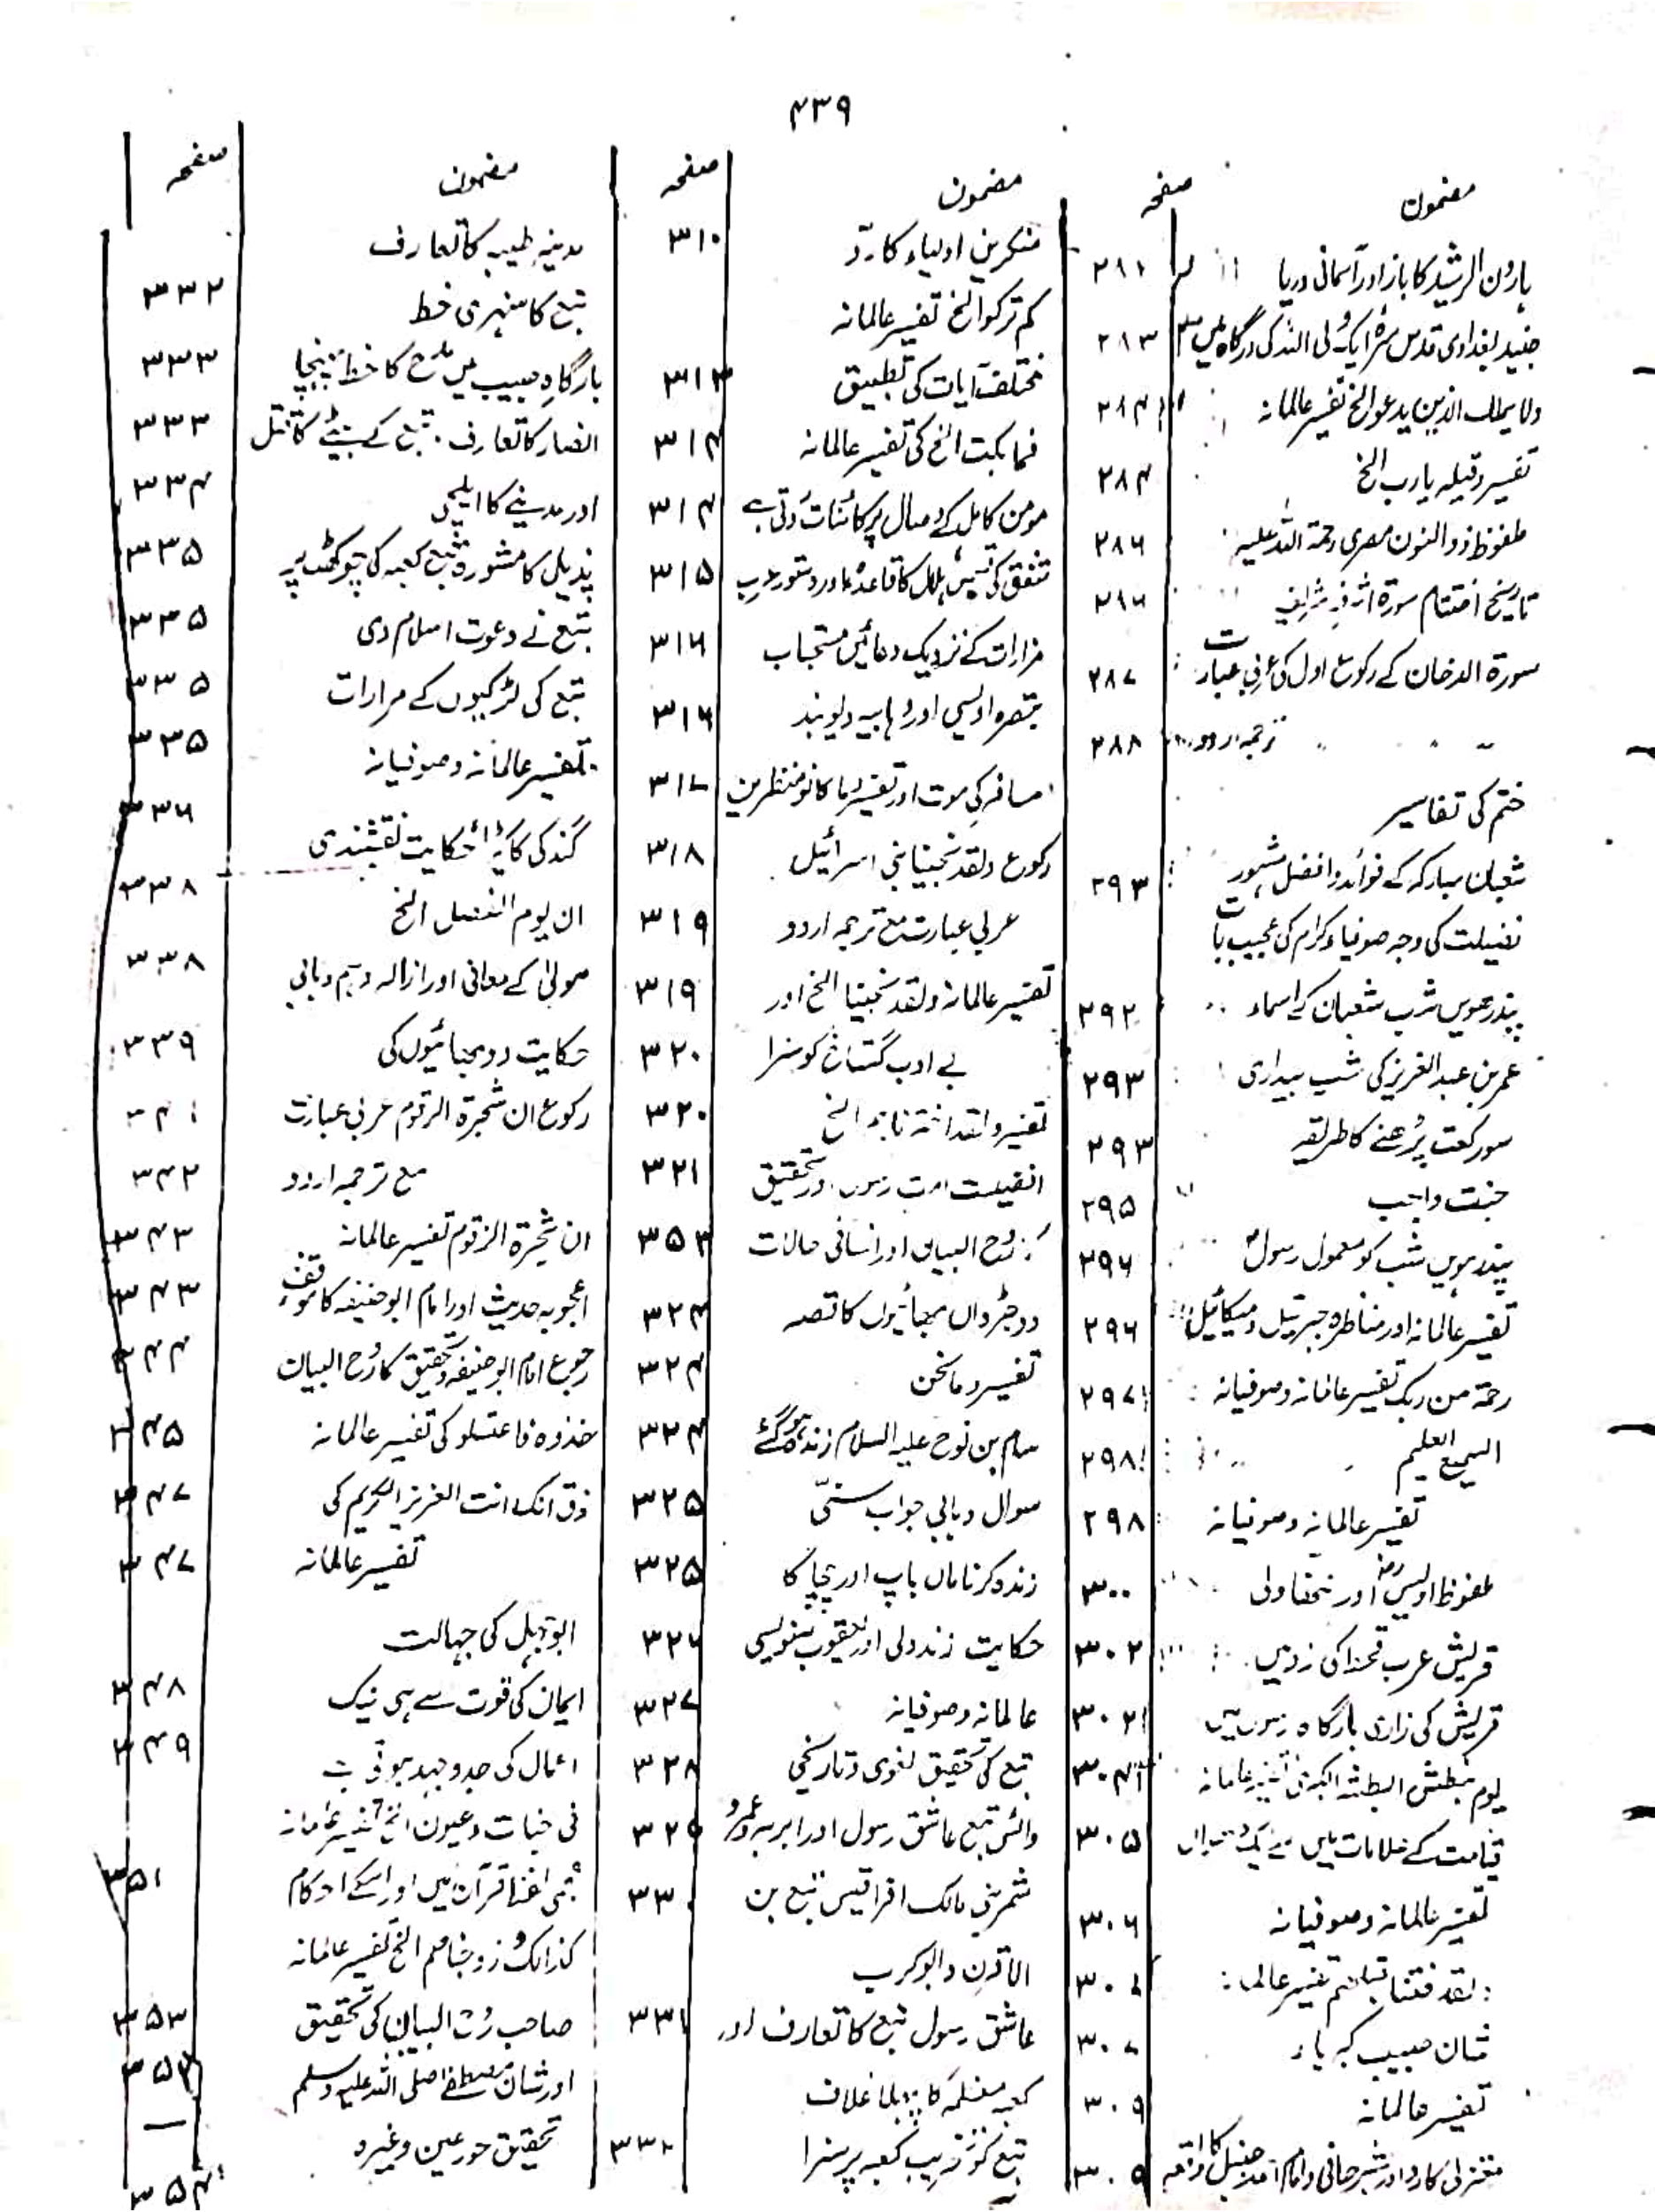 ۴۳۹
مضمون صفحہ
ہارون الرشید کا باز اور آسمانی دریا ۲۸۲
جنید بغدادی قدس سرہٗ ایک ولی اللہ کی درگاہ میں ۲۸۳
ولا یملک الذین یدعو الخ تفسیر عالمانہ ۲۸۴
تفسیر وقیلہ یارب الخ ۲۸۴
ملفوظ ذوالنون مصری رحمۃ اللہ علیہ ۲۸۶
تاریخ اختتام سورۃ شریف ۲۸۶
سورۃ الدخان کے رکوع اول کی عربی عبارت ۲۸۷
ترجمہ اردو ۲۸۸
ختم کی تفاسیر
شعبان مبارک کے فوائد و افضل مشہور ۲۹۳
فضیلت کی وجہ صوفیاء کرام کی عجیب بات
پندرھویں شب شعبان کے اسماء ۲۹۲
عمر بن عبد العزیز کی شب بیداری ۲۹۳
سو رکعت پڑھنے کا طریقہ ۲۹۳
جنت واجب ۲۹۵
پندرہویں شب کو معمول رسول ۲۹۶
تفسیر عالمانہ اور مناظرہ جبرئیل و میکائیل ۲۹۶
رحمۃ من ربک تفسیر عالمانہ و صوفیانہ ۲۹۷
السمیع العلیم ۲۹۸
تفسیر عالمانہ و صوفیانہ ۲۹۸
ملفوظ اویس اور ولی ۳۰۰
قریش عرب قحط کی زد میں ۳۰۲
قریش کی زاری بارگاہ رسول میں ۳۰۲
یوم نبطش البطشۃ الکبریٰ تفسیر عالمانہ ۳۰۴
قیامت کے علامات میں سے ایک دھواں ۳۰۵
تفسیر عالمانہ و صوفیانہ ۳۰۶
ولقد فتنا قبلہم تفسیر عالمانہ ۳۰۷
شان حبیب کبریا ۳۰۷
تفسیر عالمانہ ۳۰۹
معتزلی کا رد اور بشر حافی و امام احمد حنبل کا واقعہ ۳۰۹
مضمون صفحہ
منکرین اولیاء کا ردّ ۳۱۰
کم ترکوا الخ تفسیر عالمانہ
مختلف آیات کی تطبیق ۳۱۳
فما بکت الخ کی تفسیر عالمانہ ۳۱۴
مومن کامل کے وصال پر کائنات روتی ہے ۳۱۴
کا قاعدہ اور دستور عرب ۳۱۵
مزارات کے نزدیک دعائیں مستجاب ۳۱۶
تبصرہ اویسی اور وہابیہ دیوبند ۳۱۶
مسافر کی موت اور تفسیر وما کانوا منظرین ۳۱۷
رکوع ولقد نجینا بنی اسرائیل ۳۱۸
عربی عبارت مع ترجمہ اردو ۳۱۹
تفسیر عالمانہ ولقد نجینا الخ اور ۳۱۹
بے ادب گستاخ کو سزا ۳۲۰
تفسیر ولقد اخترناہم الخ ۳۲۰
افضلیت امت رسول اور تحقیق ۳۲۱
روح البیان اور انسانی حالات ۳۵۳
دو جڑواں بھائیوں کا قصہ ۳۲۴
تفسیر وما نحن ۳۲۴
سام بن نوح علیہ السلام زندہ ہو گئے ۳۲۴
سوال وہابی جواب سنّی ۳۲۵
زندہ کرنا ماں باپ اور چچا کا ۳۲۵
حکایت زندہ ولی اور یعقوب ۳۲۶
عالمانہ و صوفیانہ ۳۲۷
تبع کی تحقیق لغوی و تاریخی ۳۲۸
وائش تبع عاشق رسول اور ابرہہ وعمرو ۳۲۹
شمر بنی مالک افراقیس تبع بن ۳۳۰
الاقرن و ابو کرب
عاشق رسول تبع کا تعارف اور ۳۳۱
کعبہ معظمہ کا پہلا غلاف
تبع کو تخریب کعبہ پر سزا ۳۳۲
مضمون صفحہ
مدینہ طیبہ کا تعارف
تبع کا سنہری خط ۳۳۲
بارگاہِ حبیب میں تبع کا خط پہنچا ۳۳۳
انصار کا تعارف. تبع کے بیٹے کا قتل ۳۳۳
اور مدینے کا ایلچی ۳۳۴
ہذیل کا مشورہ تبع کعبہ کی چوکھٹ پر ۳۳۵
تبع نے دعوت اسلام دی ۳۳۵
تبع کی لڑکیوں کے مزارات ۳۳۵
تفسیر عالمانہ و صوفیانہ ۳۳۵
گندگی کا کیڑا حکایت نقشبندی ۳۳۶
ان یوم الفصل الخ ۳۳۸
مولیٰ کے معانی اور ازالہ وہم وہابی ۳۳۸
حکایت دو بھائیوں کی ۳۳۹
رکوع ان شجرۃ الزقوم عربی عبارت ۳۴۱
مع ترجمہ اردو ۳۴۲
ان شجرۃ الزقوم تفسیر عالمانہ ۳۴۳
اعجوبہ حدیث اور امام ابو حنیفہ کا موقف ۳۴۳
رجوع امام ابو حنیفہ و تحقیق کا روح البیان ۳۴۴
خذوہ فاعتلو کی تفسیر عالمانہ ۳۴۵
ذق انک انت العزیز الکریم کی ۳۴۷
تفسیر عالمانہ ۳۴۷
ابو جہل کی جہالت
ایمان کی قوت سے ہی نیک ۳۴۸
اعمال کی جدوجہد ہوتی ہے ۳۴۹
فی جنات وعیون الخ تفسیر عالمانہ
عجمی الفاظ قرآن میں اور اسکے احکام ۳۵۱
کذالک و زوجناھم الخ تفسیر عالمانہ
صاحب روح البیان کی تحقیق ۳۵۳
اور شان مصطفےٰ صلی اللہ علیہ وسلم ۳۵۳
تحقیق حور عین وغیرہ ۳۵۴